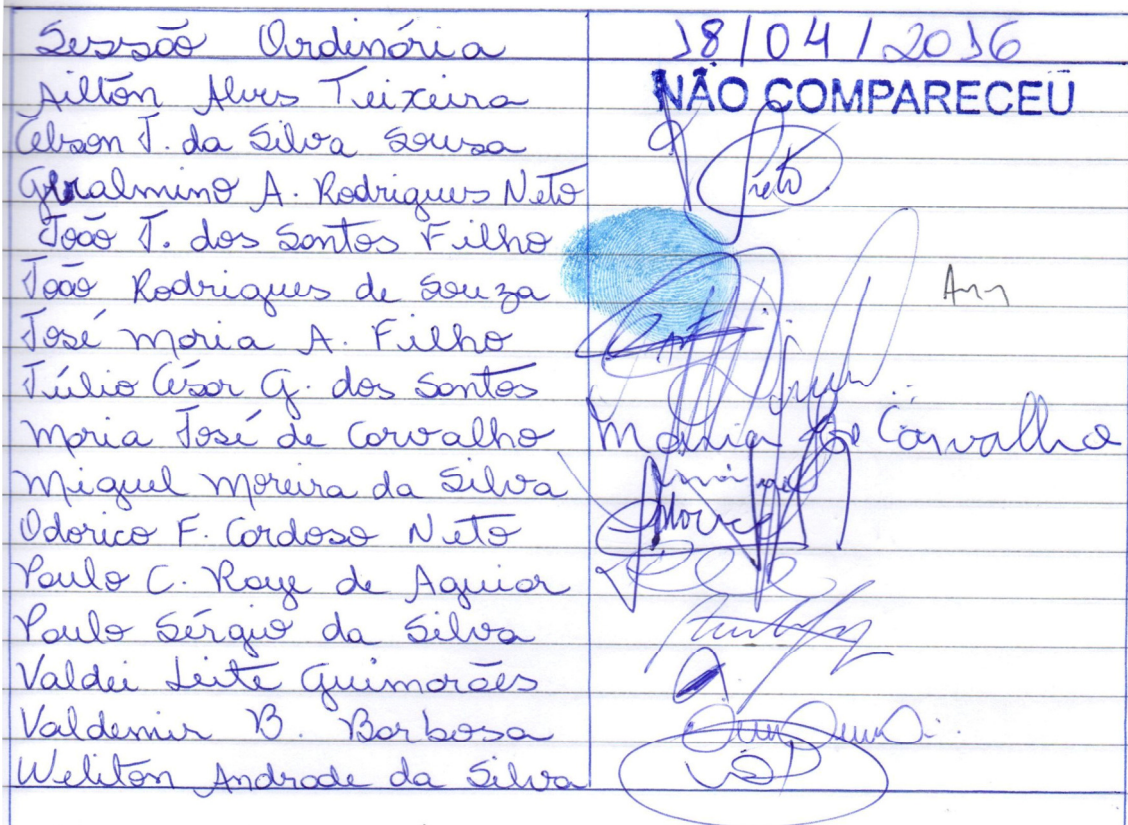 Sessão Ordinária 18/04/2016
Ailton Alves Teixeira NÃO COMPARECEU
Celson J. da Silva Sousa
Geralmino A. Rodrigues Neto Neto
João J. dos Santos Filho
João Rodrigues de Souza
José Maria A. Filho
Júlio César G. dos Santos
Maria José de Carvalho Maria José Carvalho
Miguel Moreira da Silva
Odorico F. Cardoso Neto
Paulo C. Raye de Aguiar
Paulo Sérgio da Silva
Valdei Leite Guimarães
Valdemir B. Barbosa
Weliton Andrade da Silva